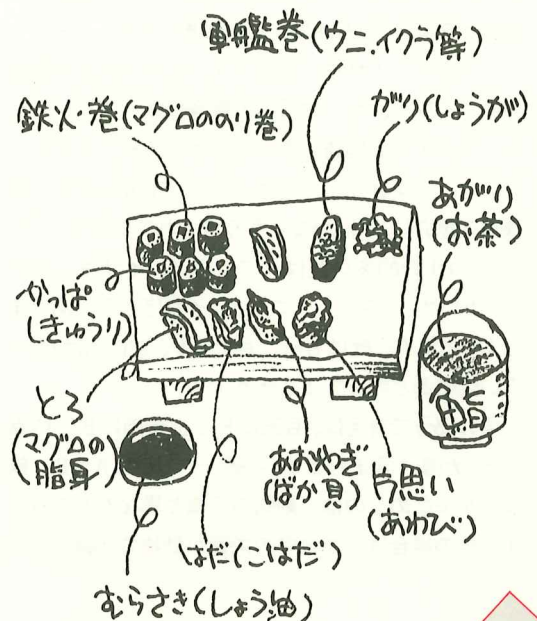 軍艦巻(ウニ.イクラ等)
鉄火巻(マグロののり巻)
がり(しょうが)
あがり
(お茶)
かっぱ
(きゅうり)
とろ
(マグロの
脂身)
鮨
あおやぎ
(ばか貝)
片思い
(あわび)
はだ(こはだ)
むらさき(しょう油)